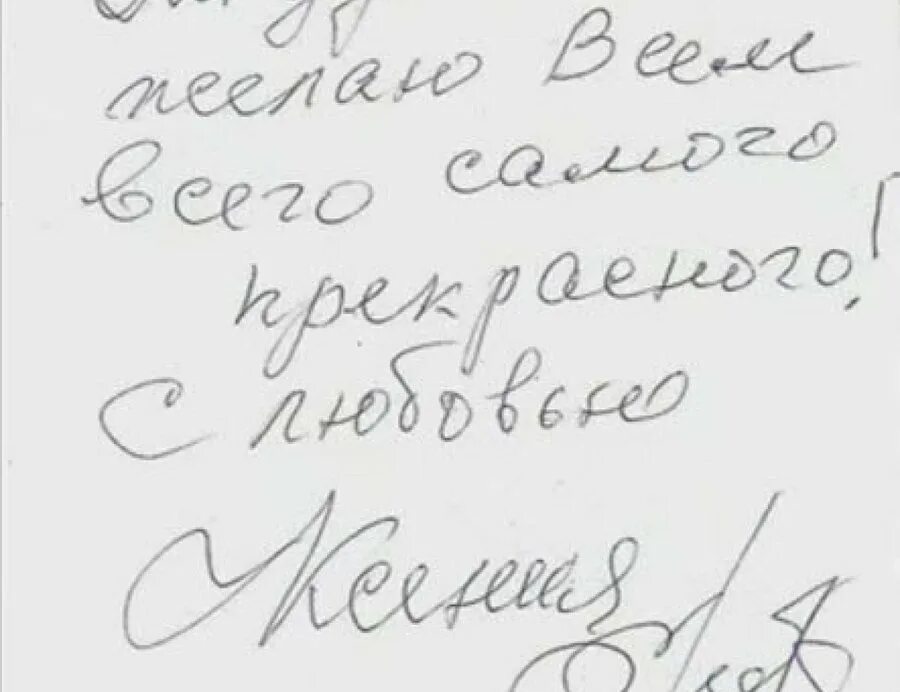 желаю Всем
всего самого
прекрасного!
С любовью
Ксения